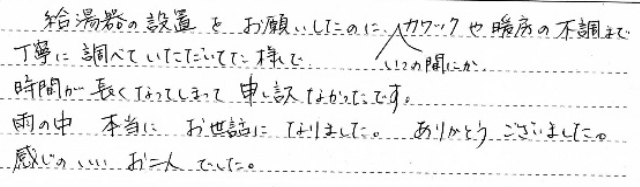 給湯器の設置をお願いしたのに、カワックや暖房の不調まで
いつの間にか、
丁寧に調べていただいてた様で
時間が長くなってしまって申し訳なかったです。
雨の中 本当に お世話に なりました。 ありがとう ございました。
感じの いい お二人 でした。